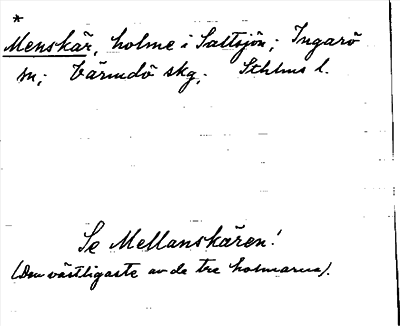 *
Menskär, holme i Saltsjön; Ingarö
sn; Värmdö skg; Sthlms l.
Se Mellanskären!
(Den västligaste av de tre holmarna).